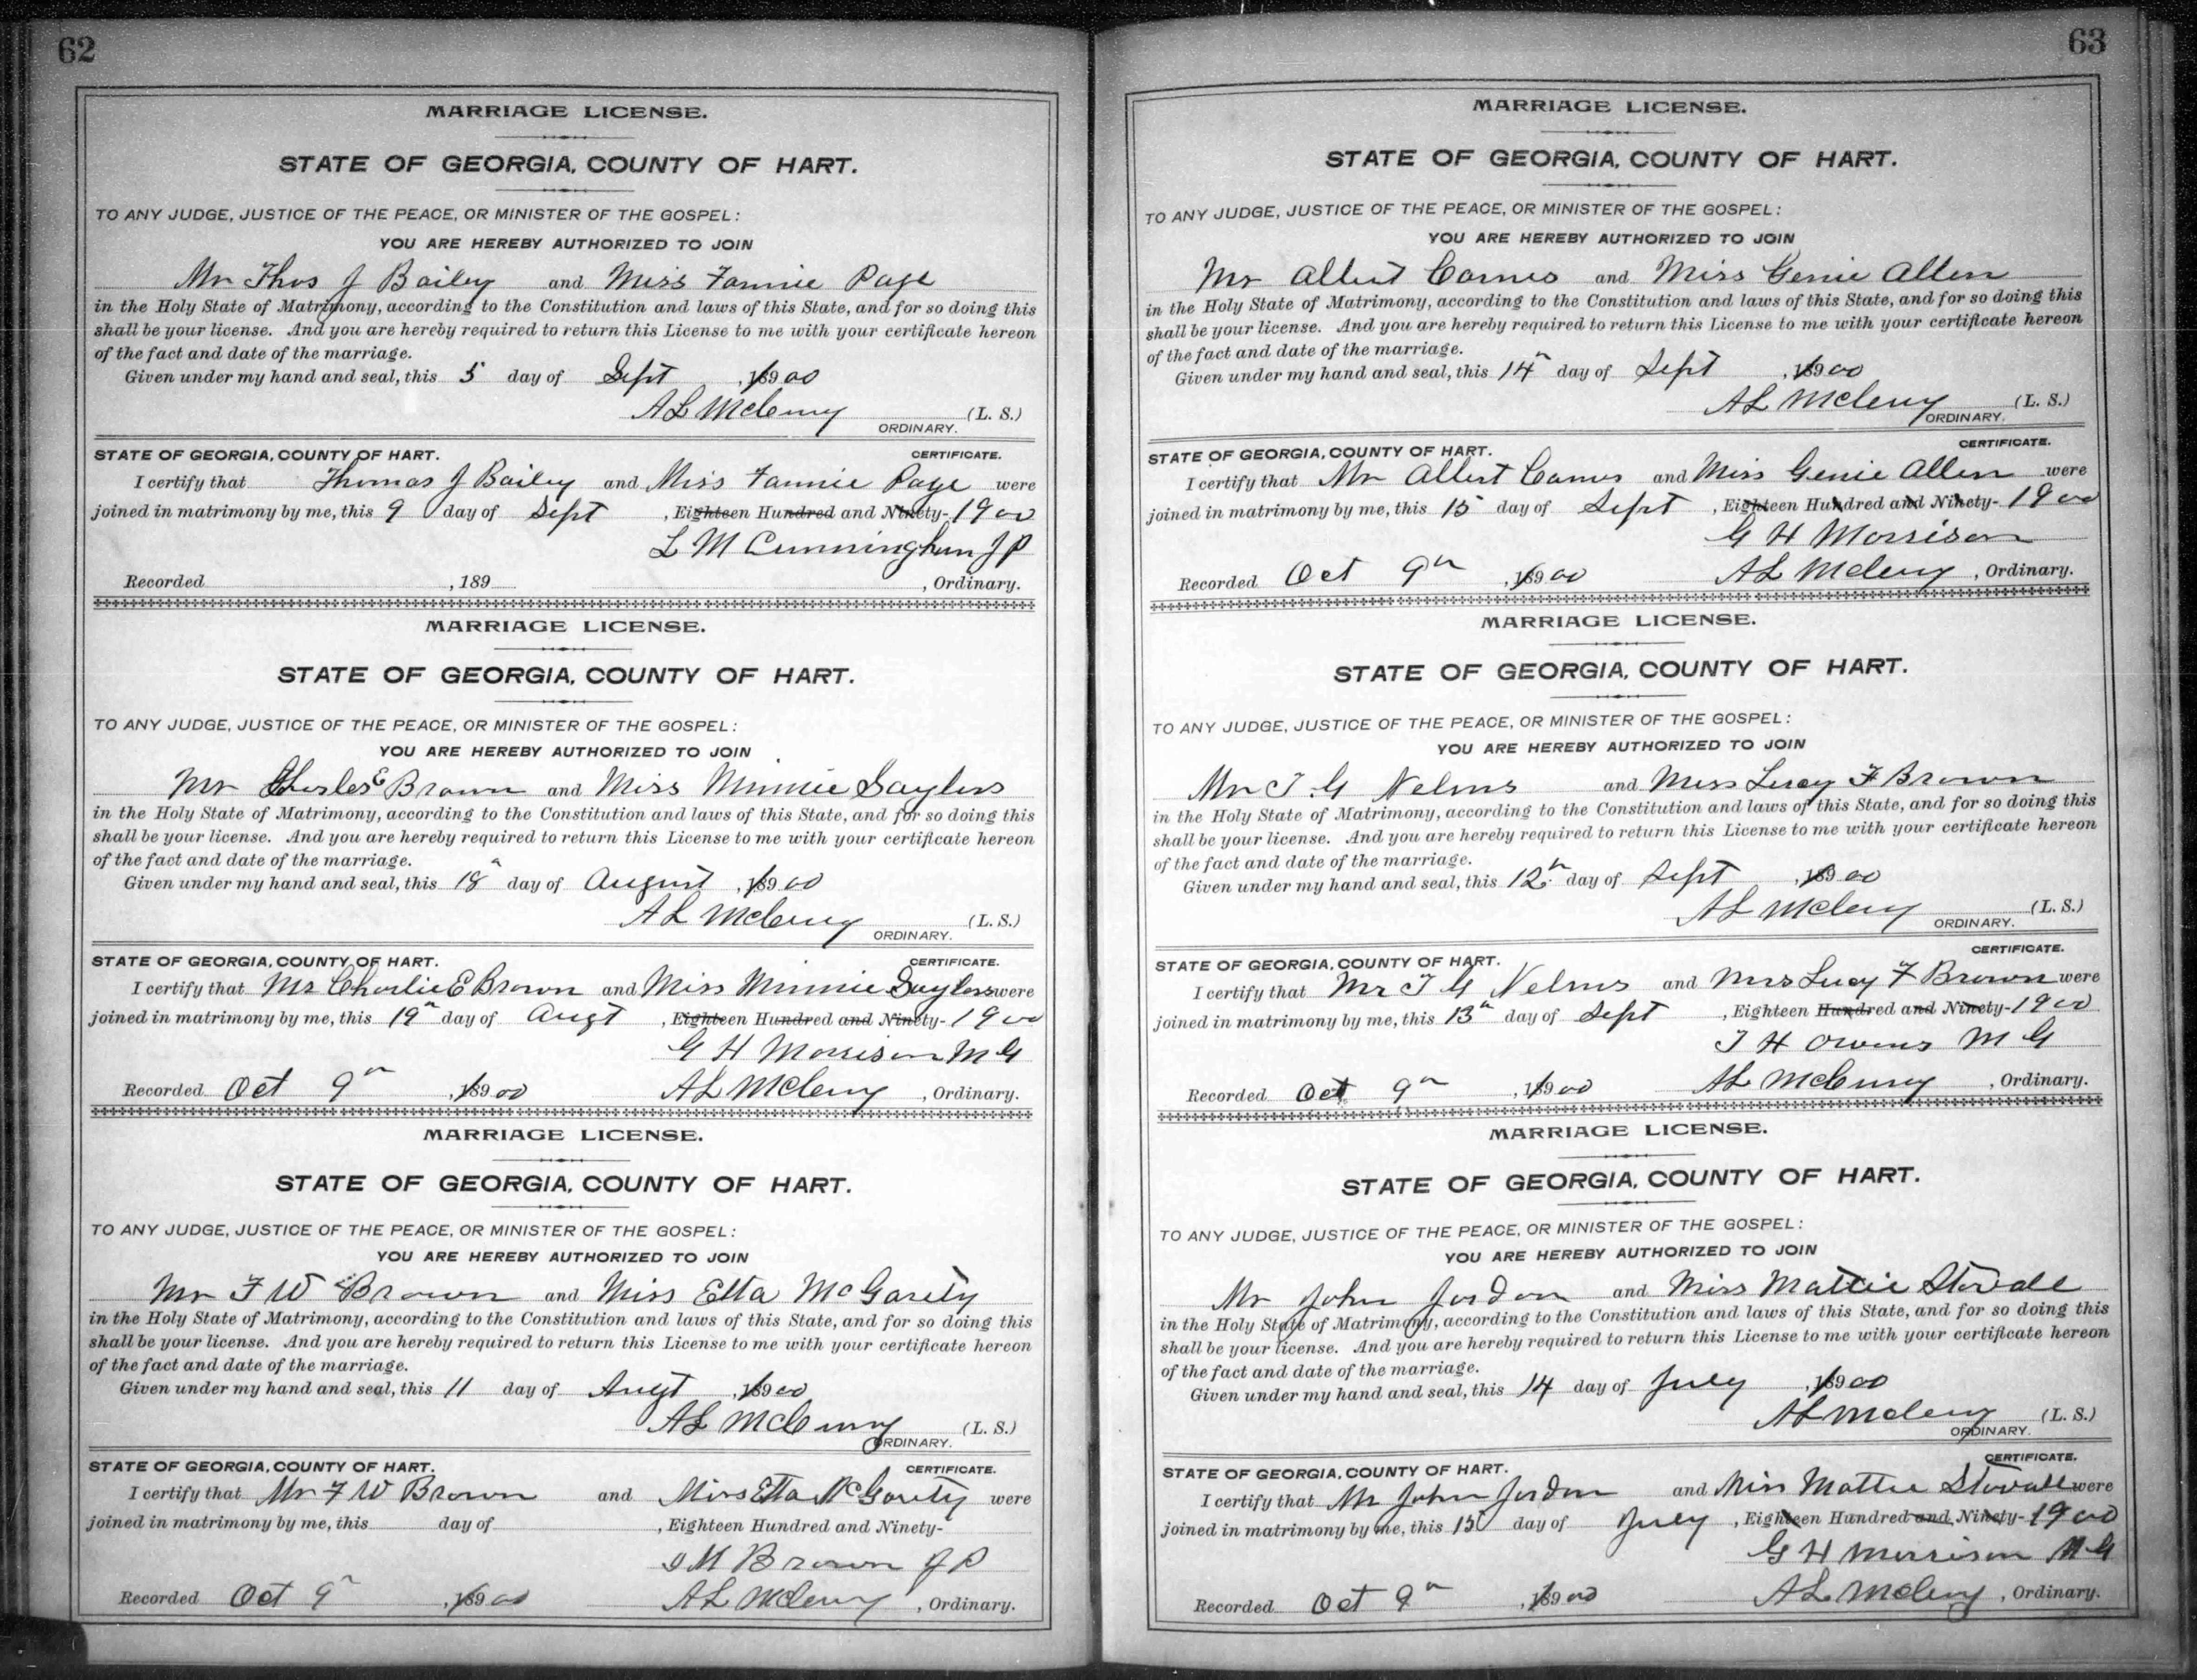 62
MARRIAGE LICENSE.
STATE OF GEORGIA, COUNTY OF HART.
TO ANY JUDGE, JUSTICE OF THE PEACE, OR MINISTER OF THE GOSPEL:
YOU ARE HEREBY AUTHORIZED TO JOIN
Mr Thos J Bailey and Miss Fannie Page
in the Holy State of Matrimony, according to the Constitution and laws of this State, and for so doing this
shall be your license. And you are hereby required to return this License to me with your certificate hereon
of the fact and date of the marriage.
Given under my hand and seal, this 5 day of Sept, 18900
A L McCurry (L. S.)
ORDINARY.
STATE OF GEORGIA, COUNTY OF HART. CERTIFICATE.
I certify that Thomas J Bailey and Miss Fannie Page were
joined in matrimony by me, this 9 day of Sept, Eighteen Hundred and Ninety-1900
L M Cunningham J P
Recorded , 189 , Ordinary.
MARRIAGE LICENSE.
STATE OF GEORGIA, COUNTY OF HART.
TO ANY JUDGE, JUSTICE OF THE PEACE, OR MINISTER OF THE GOSPEL:
YOU ARE HEREBY AUTHORIZED TO JOIN
Mr Charles E Brown and Miss Minnie Saylers
in the Holy State of Matrimony, according to the Constitution and laws of this State, and for so doing this
shall be your license. And you are hereby required to return this License to me with your certificate hereon
of the fact and date of the marriage.
Given under my hand and seal, this 18 day of August, 18900
A L McCurry (L. S.)
ORDINARY.
STATE OF GEORGIA, COUNTY OF HART. CERTIFICATE.
I certify that Mr Charlie E Brown and Miss Minnie Saylers were
joined in matrimony by me, this 19th day of Augt, Eighteen Hundred and Ninety-1900
G H Morrison M G
Recorded Oct 9th, 18900 A L McCurry, Ordinary.
MARRIAGE LICENSE.
STATE OF GEORGIA, COUNTY OF HART.
TO ANY JUDGE, JUSTICE OF THE PEACE, OR MINISTER OF THE GOSPEL:
YOU ARE HEREBY AUTHORIZED TO JOIN
Mr F W Brown and Miss Etta McGarity
in the Holy State of Matrimony, according to the Constitution and laws of this State, and for so doing this
shall be your license. And you are hereby required to return this License to me with your certificate hereon
of the fact and date of the marriage.
Given under my hand and seal, this 11 day of Augt, 18900
A L McCurry (L. S.)
ORDINARY.
STATE OF GEORGIA, COUNTY OF HART. CERTIFICATE.
I certify that Mr F W Brown and Miss Etta McGarity were
joined in matrimony by me, this day of , Eighteen Hundred and Ninety-
M Brown J P
Recorded Oct 9th, 18900 A L McCurry, Ordinary.
63
MARRIAGE LICENSE.
STATE OF GEORGIA, COUNTY OF HART.
TO ANY JUDGE, JUSTICE OF THE PEACE, OR MINISTER OF THE GOSPEL:
YOU ARE HEREBY AUTHORIZED TO JOIN
Mr Albert Carnes and Miss Genie Allen
in the Holy State of Matrimony, according to the Constitution and laws of this State, and for so doing this
shall be your license. And you are hereby required to return this License to me with your certificate hereon
of the fact and date of the marriage.
Given under my hand and seal, this 14th day of Sept, 18900
A L McCurry (L. S.)
ORDINARY.
STATE OF GEORGIA, COUNTY OF HART. CERTIFICATE.
I certify that Mr Albert Carnes and Miss Genie Allen were
joined in matrimony by me, this 15 day of Sept, Eighteen Hundred and Ninety-1900
G H Morrison
Recorded Oct 9th, 18900 A L McCurry, Ordinary.
MARRIAGE LICENSE.
STATE OF GEORGIA, COUNTY OF HART.
TO ANY JUDGE, JUSTICE OF THE PEACE, OR MINISTER OF THE GOSPEL:
YOU ARE HEREBY AUTHORIZED TO JOIN
Mr T. G Nelms and Miss Lucy F Brown
in the Holy State of Matrimony, according to the Constitution and laws of this State, and for so doing this
shall be your license. And you are hereby required to return this License to me with your certificate hereon
of the fact and date of the marriage.
Given under my hand and seal, this 12th day of Sept, 18900
A L McCurry (L. S.)
ORDINARY.
STATE OF GEORGIA, COUNTY OF HART. CERTIFICATE.
I certify that Mr T G Nelms and Mrs Lucy F Brown were
joined in matrimony by me, this 13th day of Sept, Eighteen Hundred and Ninety-1900
T H Owens M G
Recorded Oct 9th, 18900 A L McCurry, Ordinary.
MARRIAGE LICENSE.
STATE OF GEORGIA, COUNTY OF HART.
TO ANY JUDGE, JUSTICE OF THE PEACE, OR MINISTER OF THE GOSPEL:
YOU ARE HEREBY AUTHORIZED TO JOIN
Mr John Jordon and Miss Mattie Stovall
in the Holy State of Matrimony, according to the Constitution and laws of this State, and for so doing this
shall be your license. And you are hereby required to return this License to me with your certificate hereon
of the fact and date of the marriage.
Given under my hand and seal, this 14 day of July, 18900
A L McCurry (L. S.)
ORDINARY.
STATE OF GEORGIA, COUNTY OF HART. CERTIFICATE.
I certify that Mr John Jordon and Miss Mattie Stovall were
joined in matrimony by me, this 15 day of July, Eighteen Hundred and Ninety-1900
G H Morrison M G
Recorded Oct 9th, 18900 A L McCurry, Ordinary.